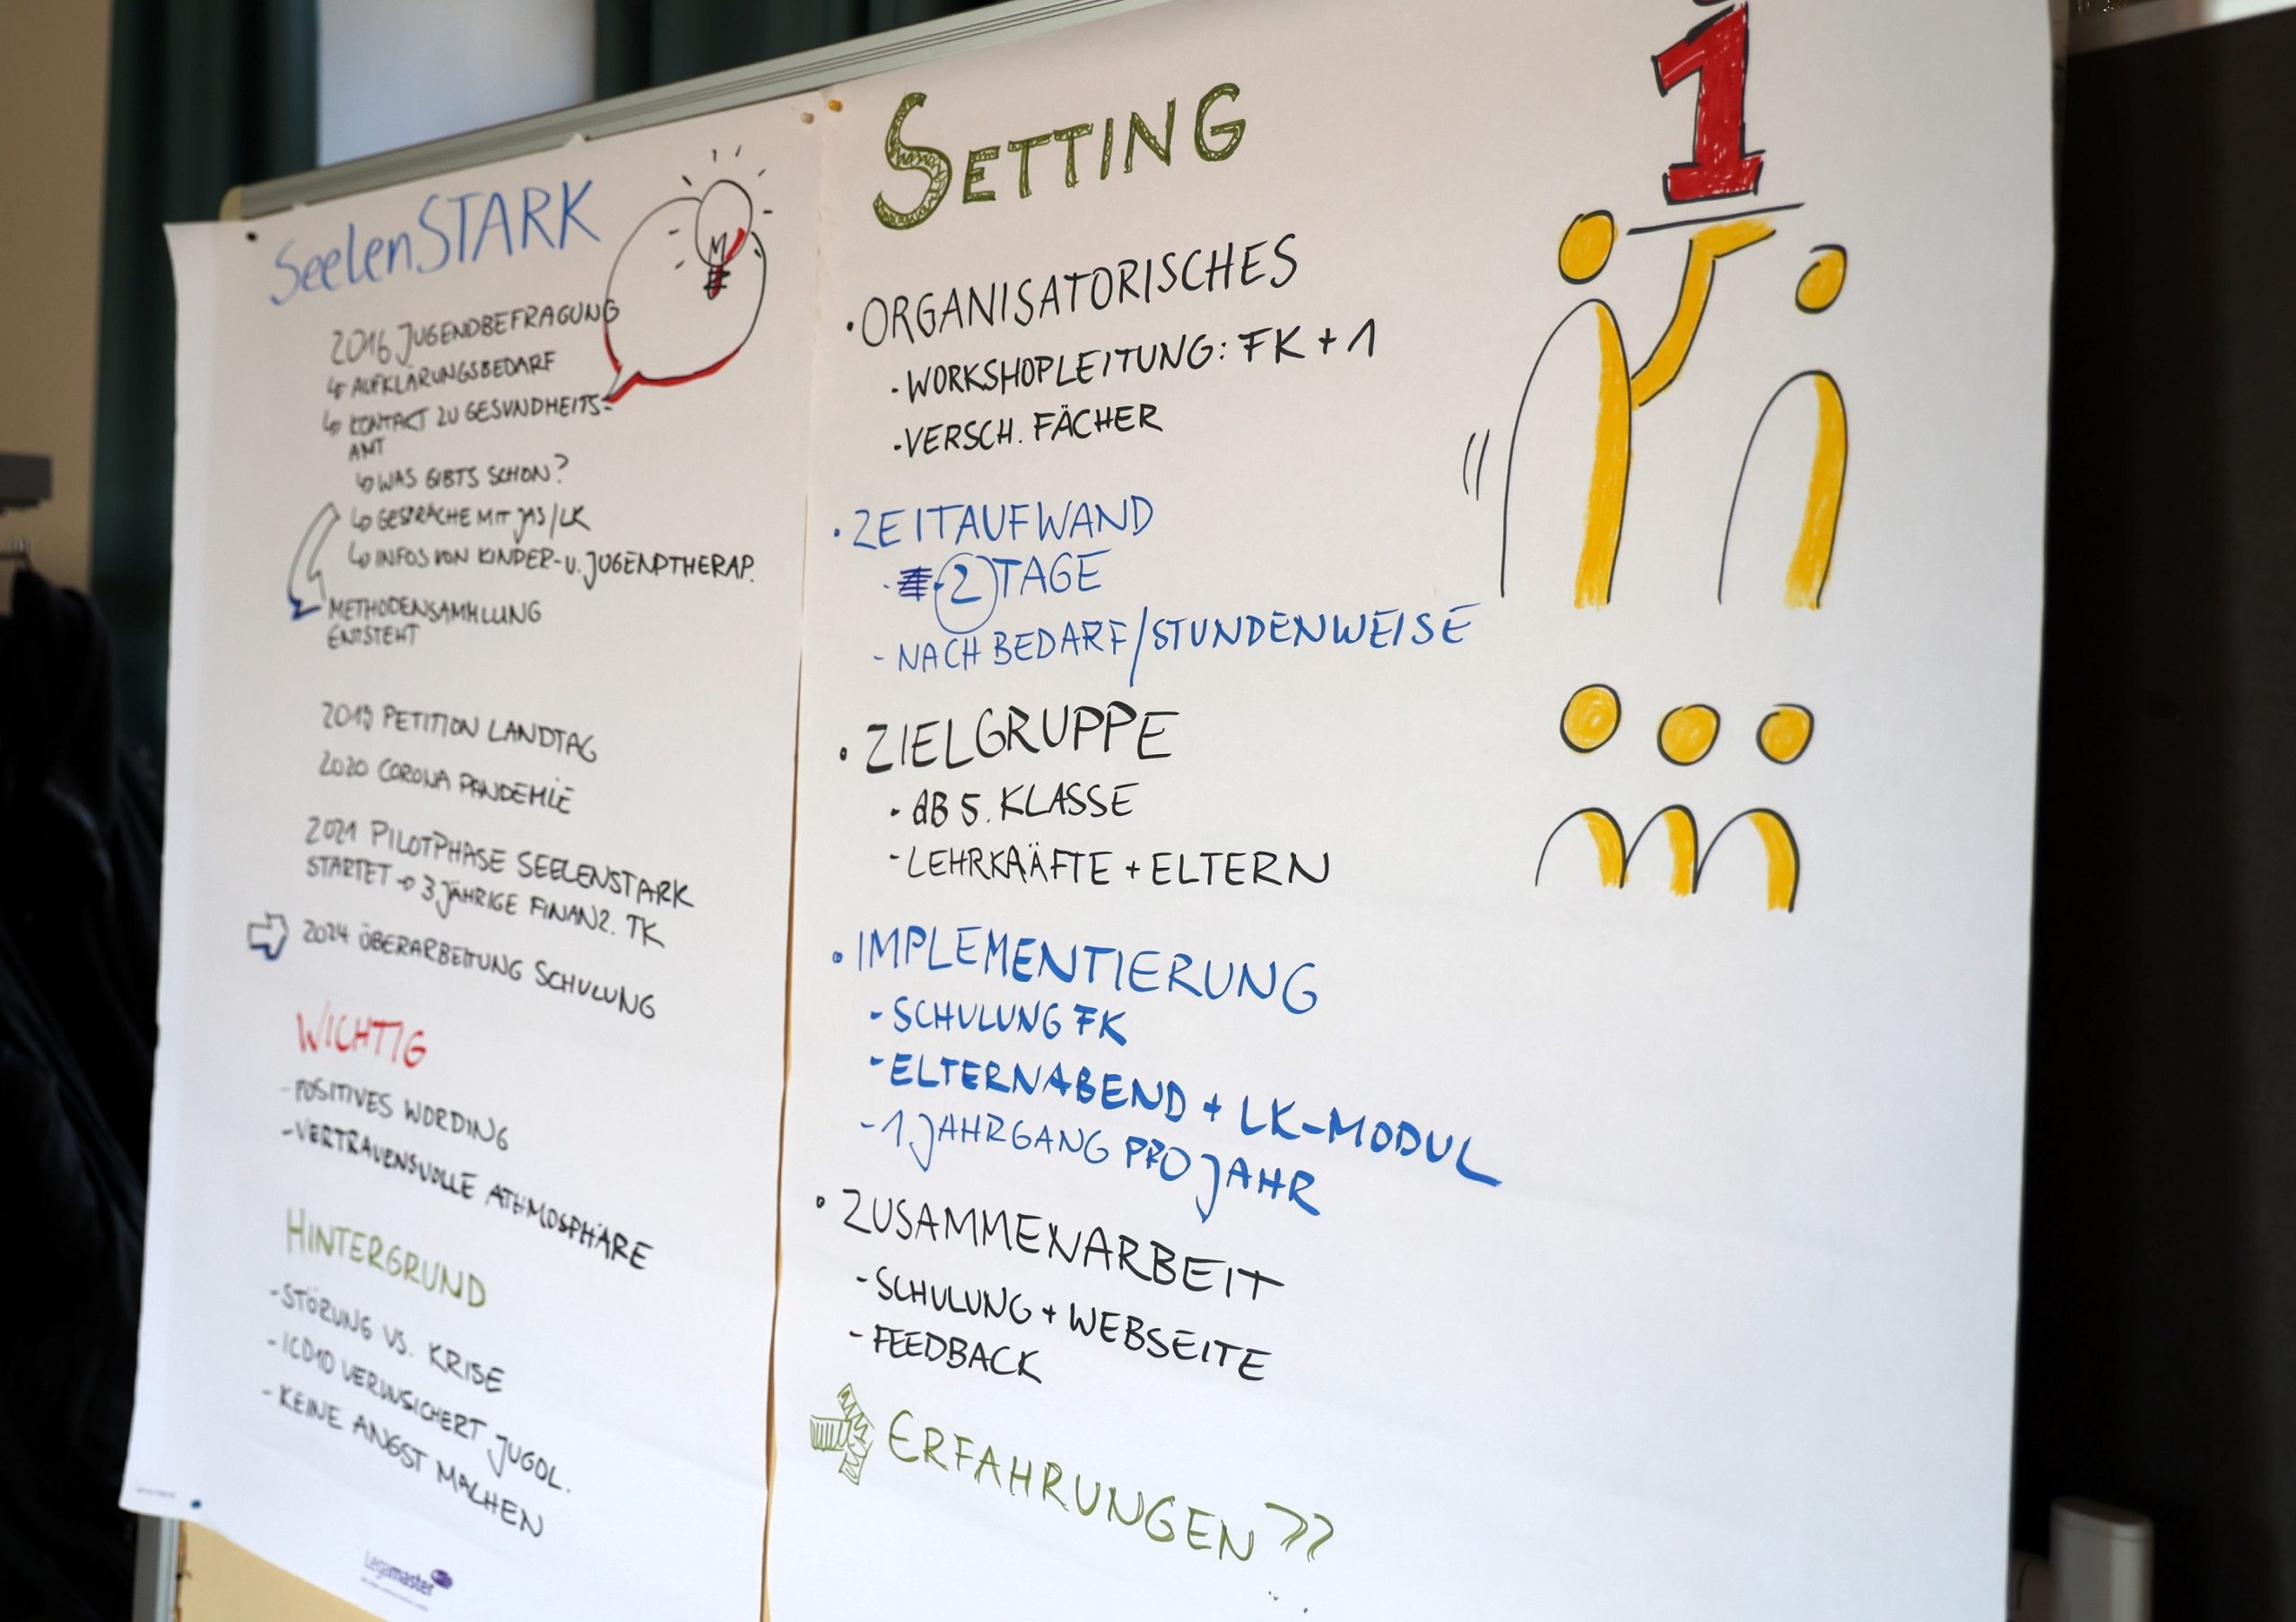 SeelenSTARK
2016 JUGENDBEFRAGUNG
↳ AUFKLÄRUNGSBEDARF
↳ KONTAKT ZU GESUNDHEITS-
AMT
↳ WAS GIBTS SCHON?
↳ GESPRÄCHE MIT JAS/LK
↳ INFOS VON KINDER- U. JUGENDTHERAP.
METHODENSAMMLUNG
ENTSTEHT
2019 PETITION LANDTAG
2020 CORONA PANDEMIE
2021 PILOTPHASE SEELENSTARK
STARTET → 3 JÄHRIGE FINANZ. TK
2024 ÜBERARBEITUNG SCHULUNG
WICHTIG
- POSITIVES WORDING
- VERTRAUENSVOLLE ATHMOSPHÄRE
HINTERGRUND
- STÖRUNG VS. KRISE
- ICD10 VERUNSICHERT JUGDL.
- KEINE ANGST MACHEN
Legamaster
SETTING
• ORGANISATORISCHES
- WORKSHOPLEITUNG: FK + 1
- VERSCH. FÄCHER
• ZEITAUFWAND
- 2 TAGE
- NACH BEDARF/STUNDENWEISE
• ZIELGRUPPE
- AB 5. KLASSE
- LEHRKAÄFTE + ELTERN
• IMPLEMENTIERUNG
- SCHULUNG FK
- ELTERNABEND + LK-MODUL
- 1 JAHRGANG PRO JAHR
• ZUSAMMENARBEIT
- SCHULUNG + WEBSEITE
- FEEDBACK
ERFAHRUNGEN >>
1